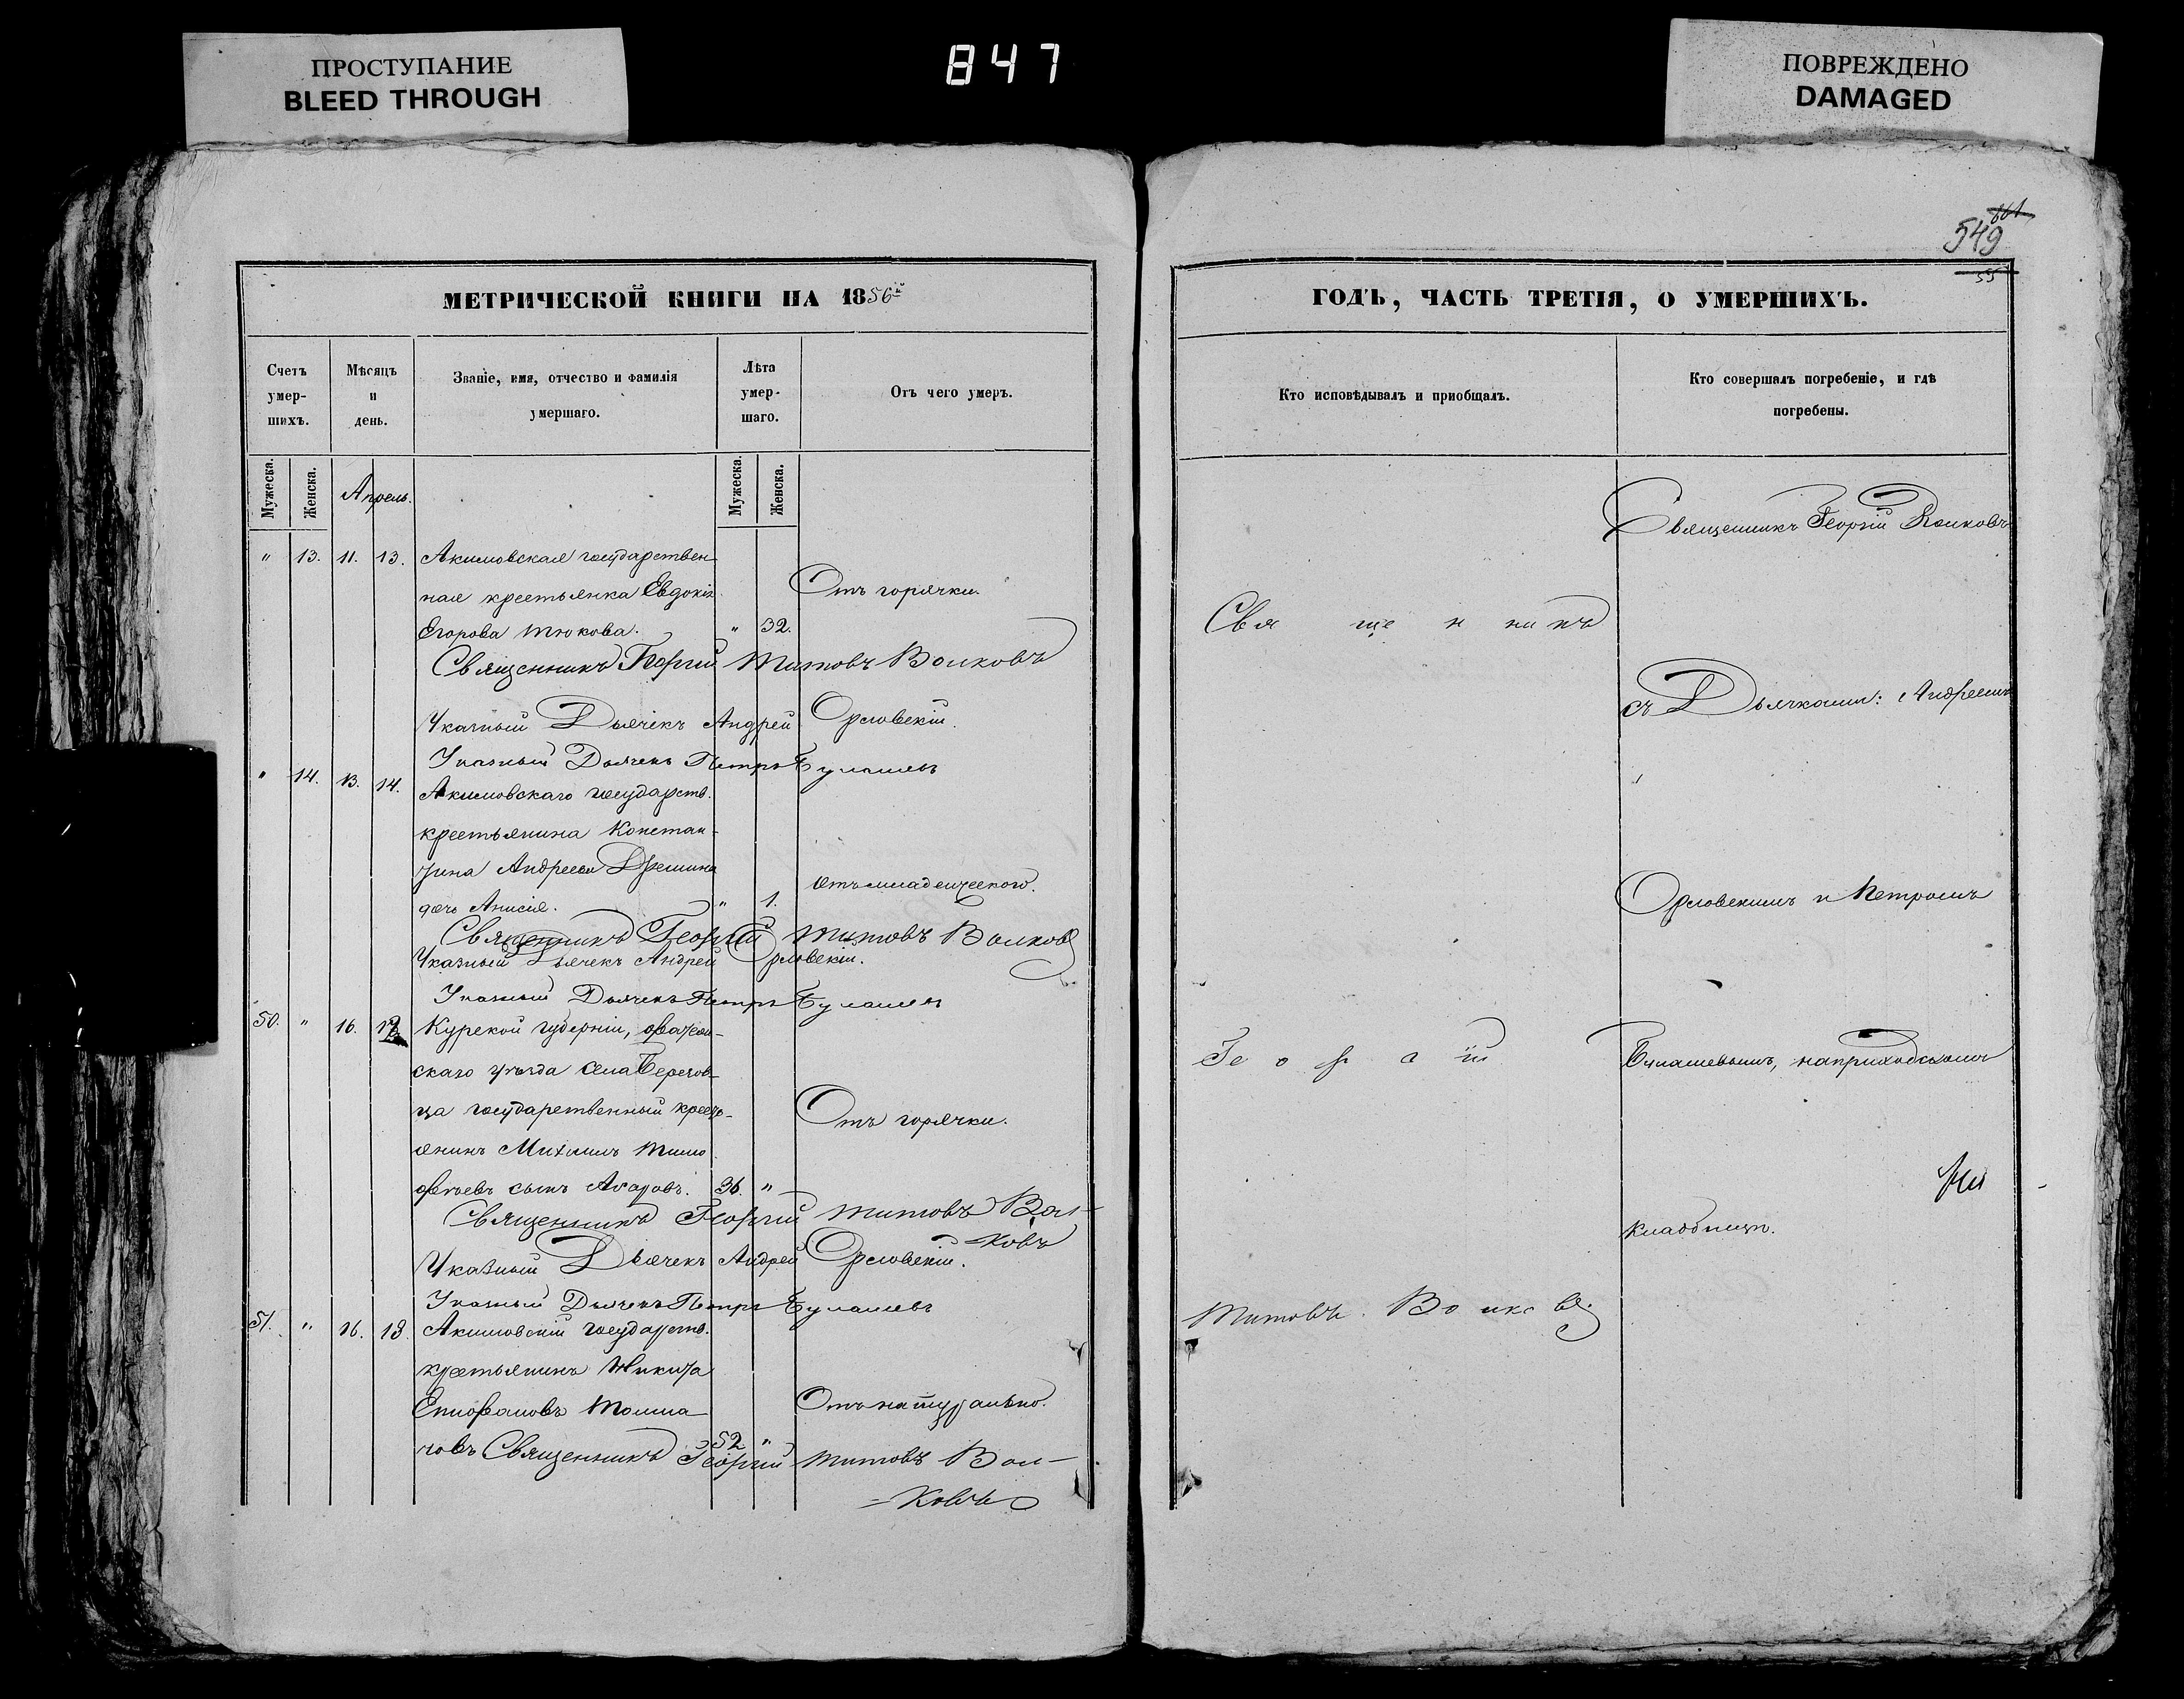 ПРОСТУПАНИЕ
BLEED THROUGH
847
ПОВРЕЖДЕНО
DAMAGED
МЕТРИЧЕСКОЙ КНИГИ НА 1856й
Счетъ умер-шихъ.
Мѣсяцъ и день.
Званіе, имя, отчество и фамилія умершаго.
Лѣта умер-шаго.
Отъ чего умеръ.
Мужеска. Женска. Апрель. Мужеска. Женска.
" 13. 11. 13. Акимовская государствен-
ная крестьянка Евдокія Отъ горячки.
Егорова Тюкова. " 32.
Священникъ Георгій Титовъ Волковъ
Указный Дьячекъ Андрей Орловскій.
Указный Дьячекъ Петръ Булашевъ
" 14. 13. 14. Акимовскаго государств.
крестьянина Констан-
тина Андреева
дочь Анисія. " 1. отъ младенческого.
Священникъ Георгій Титовъ Волковъ
Указный Дьячекъ Андрей Орловскій.
Указный Дьячекъ Петръ Булашевъ
50. " 16. Курской губерніи,
скаго уѣзда села Берегов-
ца государственный кресть- Отъ горячки.
янинъ Михаилъ Тимо
феевъ сынъ 36. "
Священникъ Георгій Титовъ Вол-
ковъ
Указный Дьячекъ Андрей Орловскій.
Указный Дьячекъ Петръ Булашевъ
51. " 16. 18. Акимовскій государств.
крестьянинъ Никита
Епифановъ Толма Отъ натурально.
човъ 52 "
Священникъ Георгій Титовъ Вол-
-ковъ
661
549
55
ГОДЪ, ЧАСТЬ ТРЕТІЯ, О УМЕРШИХЪ.
Кто исповѣдывалъ и приобщалъ.
Кто совершалъ погребеніе, и гдѣ погребены.
Священникъ
Георгій
Титовъ. Волковъ
Священникъ Георгій Волковъ
съ Дьячками: Андреемъ
Орловскимъ и Петромъ
Булашевымъ, на приходскомъ
кладбищѣ.